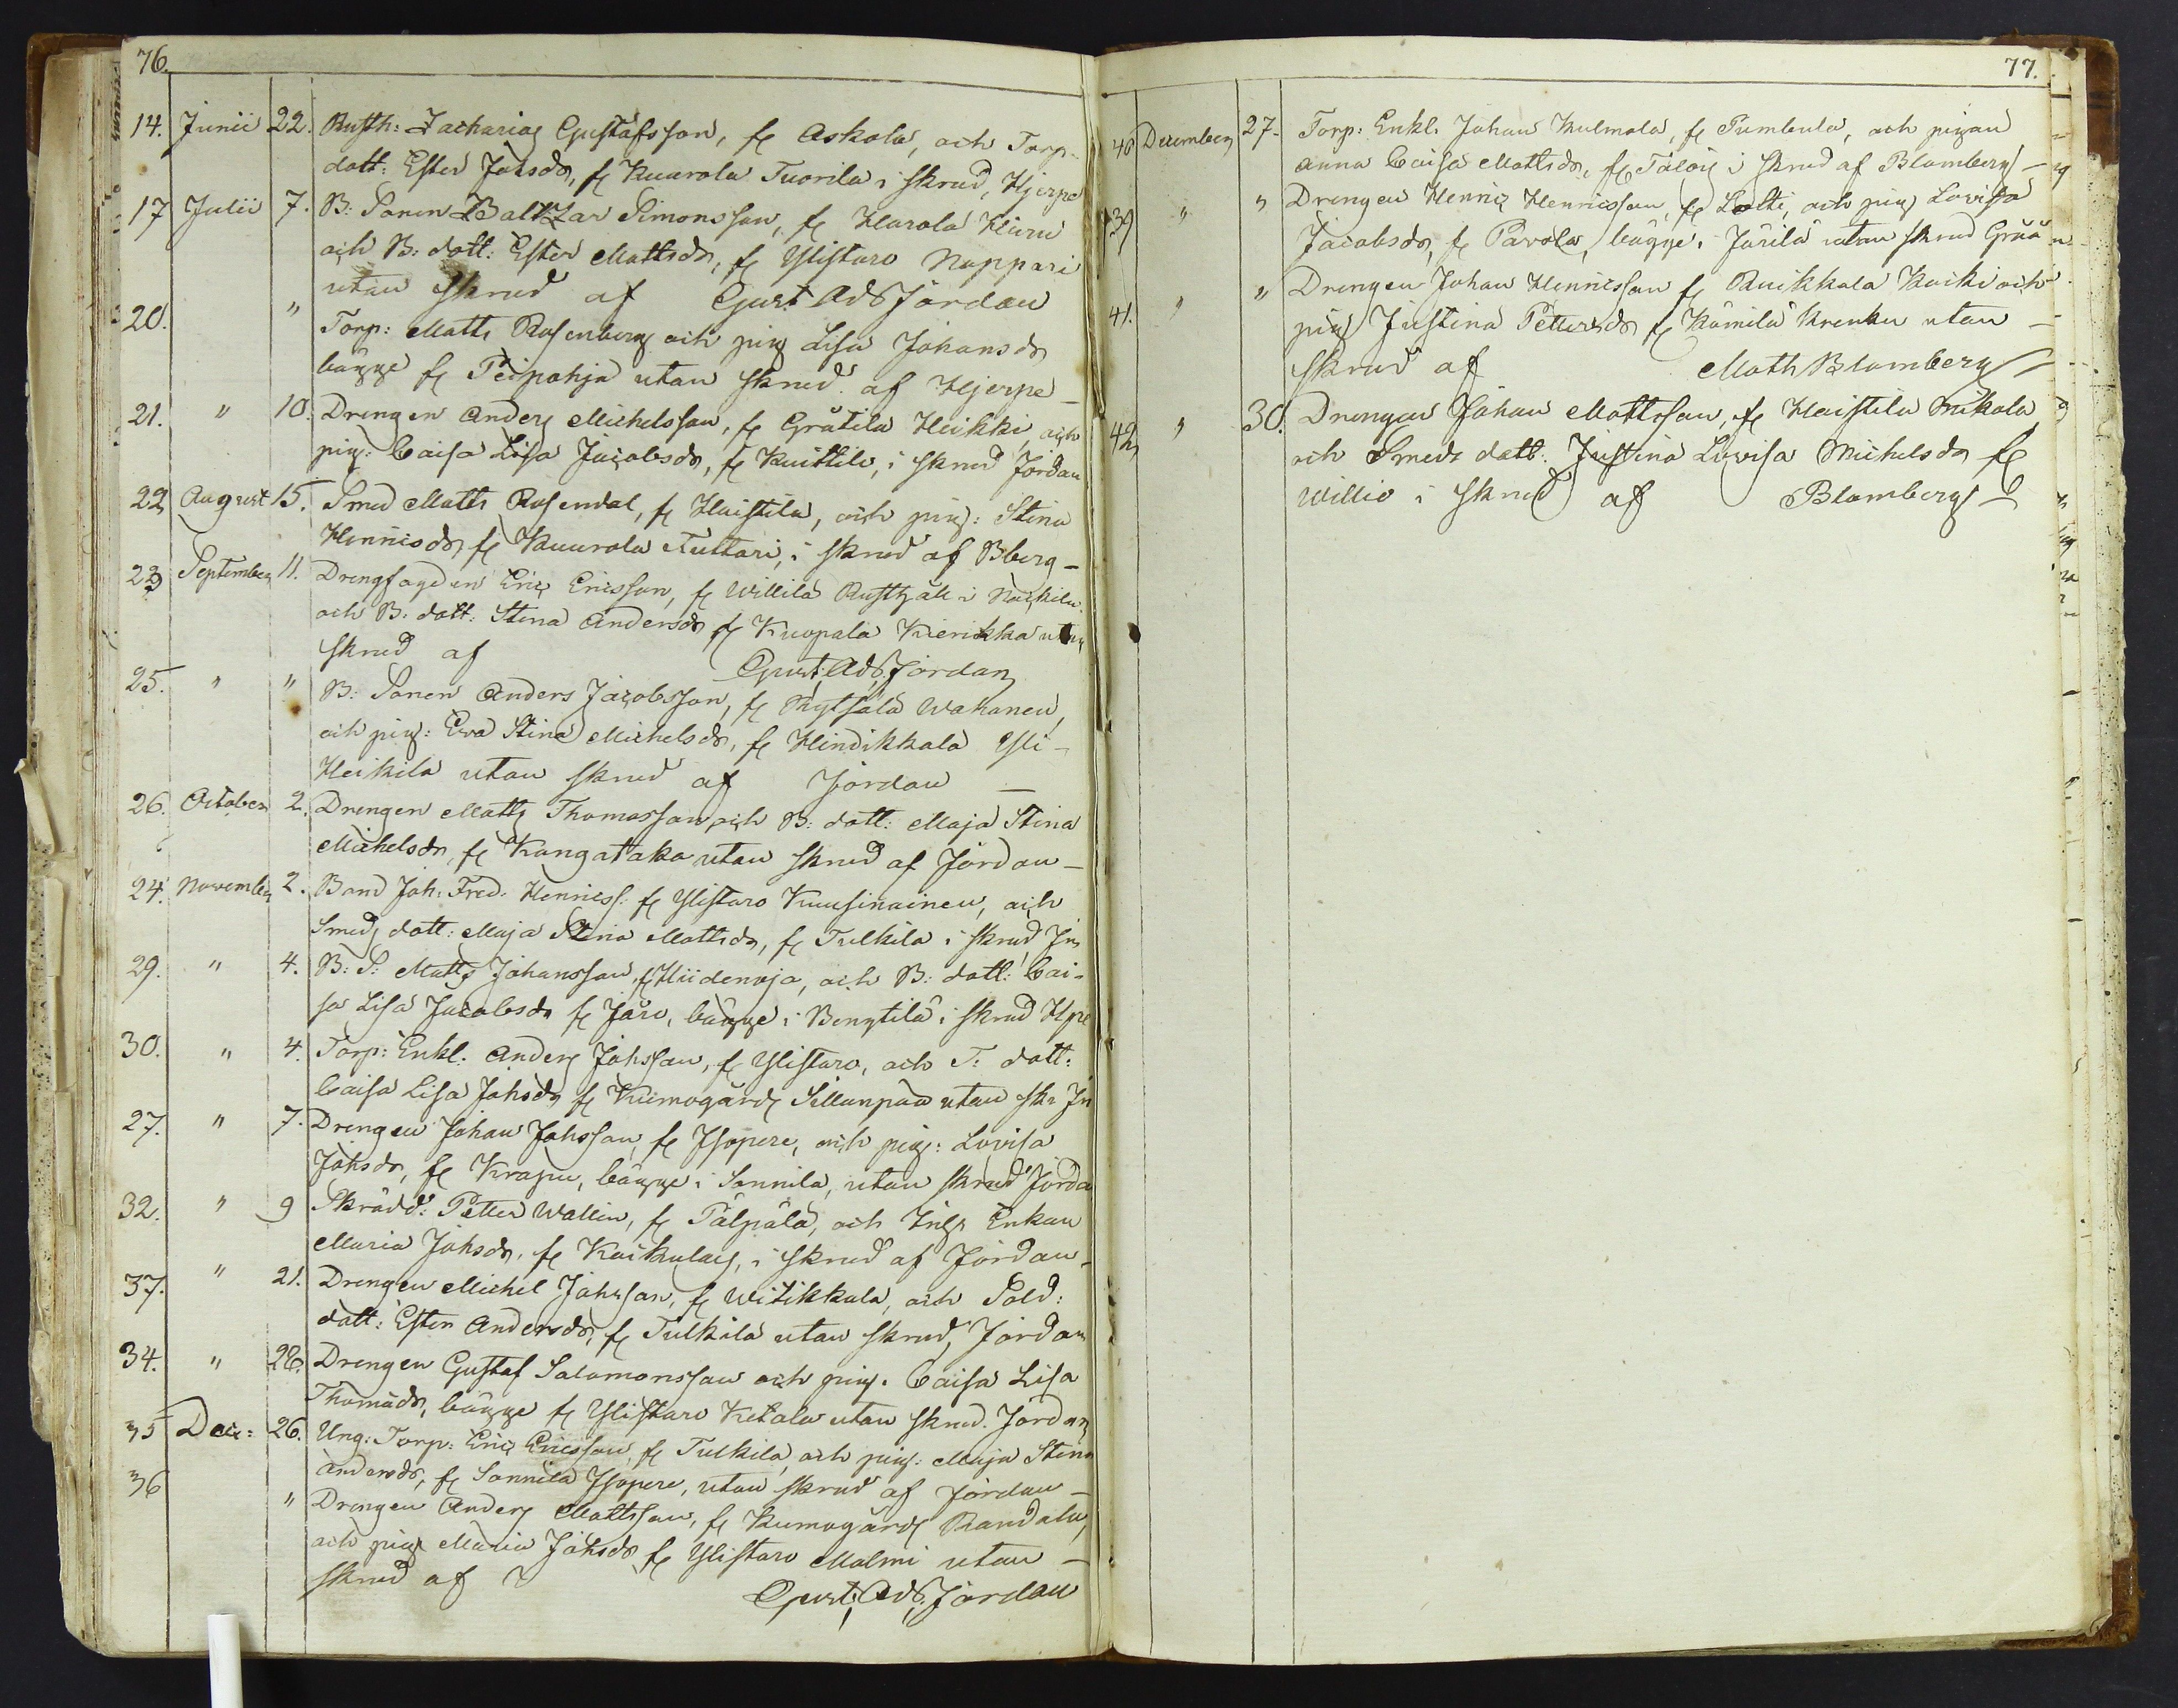 76.
14. Junii 22. Rusth: Zacharias Gustafsson, fr Askola, och Torp.
dott: Ester Jacsdr, fr Kuurola Tuorila i skrud, Hjerpe
17 Julii 7. B: Sonen Baltzar Simonsson, fr Harola Kiuru
och B: dott: Ester Mattsdr, fr Ylistaro Nappari
utan skrud af Gust: Ad: Jordan
20. " Torp: Matts Rosenberg och pig Lisa Johansdr
bägge fr Peipohja utan skrud af Hjerpe –
21. " 10. Drengen Anders Michelsson, fr Gråtila Heikki, och
pig: Caisa Lisa Jacobsdr, fr Kuittilo, i skrud Jordan
22 August 15. Smed Matts Rosendal, fr Haistila, och pig: Stina
Henricsdr, fr Kuurola Tuttari, i skrud af Bberg –
23 September 11. Drengfogden Eric Ericsson, fr Willilä Rusthåll i Nackila
och B: dott: Stina Andersdr fr Kuopala Kierikka utan
skrud af Gust: Ad: Jordan
25. " " B: Sonen Anders Jacobsson, fr Rytsälä Wahanen,
och pig: Eva Stina Michelsdr, fr Hindikkala Yli-
Heikilä utan skrud af Jordan –
26. October 2. Drengen Matts Thomasson, och B: dott: Maja Stina
Michelsdr, fr Kangataka utan skrud af Jordan –
24. November 2. Bond Joh: Fred: Henricss: fr Ylistaro Kuusinainen, och
Smeds dott: Maja Stina Mattsdr, fr Tulkila i skrud Jn
29. " 4. B: S: Matts Johansson, fr Hiidenoja, och B: dott: Cai-
sa Lisa Jacobsdr fr Järo, bägge i Bengtilä i skrud Hpe
30. " 4. Torp: Enkl. Anders Johsson, fr Ylistaro, och T: dott:
Caisa Lisa Johsdr fr Kumogårds Sillanpää utan skr Jn
27. " 7. Drengen Johan Johsson, fr Isopere, och pig: Lovisa
Johsdr, fr Krapu, bägge i Sonnila, utan skrud Jorda
32. " 9 Skrädd: Petter Wallin, fr Pälpälä, och Inhs Enkan
Maria Johsdr, fr Kaikulas, i skrud af Jordan –
37. " 21. Drengen Michel Johsson, fr Witikkala, och Sold:
dott: Ester Andersdr, fr Tulkila utan skrud, Jordan
34. " 28. Drengen Gustaf Salomonsson och pig. Caisa Lisa
Thomädr, bägge fr Ylistaro Ketala utan skrud. Jordan
35 Dec: 26. Ung: Torp: Eric Ericsson, fr Tulkila, och pig: Maja Stina
Andersdr, fr Sonnila Isopere, utan skrud af Jordan –
36 " Drengen Anders Mattsson, fr Kumogårds Randala,
och pig Maria Johsdr fr Ylistaro Malmi utan –
skrud af Gust: Ad: Jordan
77.
40 December 27. Torp: Enkl. Johan Kulmala, fr Pumbula, och pigan
Anna Caisa Mattsdr, fr Talois i skrud af Blomberg –
39 " " Drengen Henric Henricsson, fr Lotti, och pig Lovisa
Jacobsdr, fr Pavola, bägge i Järilä utan skrud Grää
41. " " Drengen Johan Henricsson fr Ruikkala Kaski och
pig Justina Pettersdr fr Kämilä Krenku utan –
skrud af Math Blomberg
42 " 30. Drengen Johan Mattsson, fr Haistila Mikola
och Smeds dott: Justina Lovisa Michelsdr fr
Willio i skrud af Blomberg